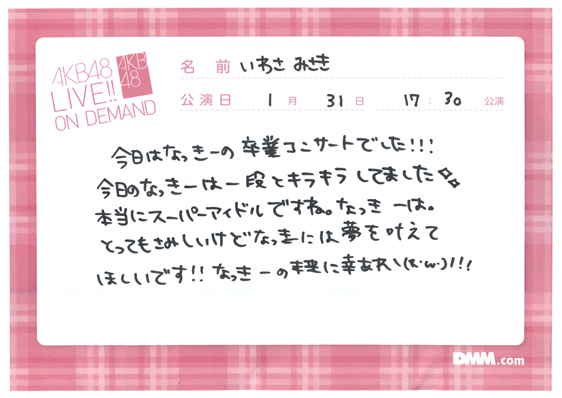 AKB48
LIVE!!
ON DEMAND
AKB
48
名 前 いわさ みさき
公演日 1月 31日 17:30 公演
今日はなっきーの卒業コンサートでした!!!
今日のなっきーは一段とキラキラしてました✧✧
本当にスーパーアイドルですね。なっきーは。
とってもさみしいけどなっきーには夢を叶えて
ほしいです!! なっきーの未来に幸あれ\(x･w･)!!!
DMM.com